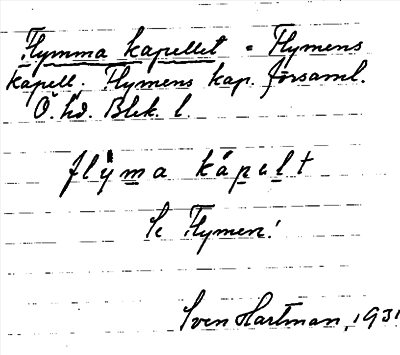 Flymma kapellet = Flymens
kapell. Flymens kap. församl.
Ö. hd. Blek. l.
flÿma kápelt
Se Flymen!
Sven Hartman, 1931